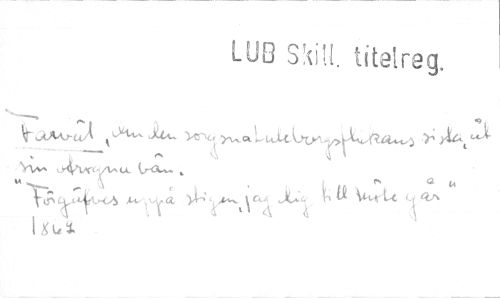 LUB Skill. titelreg.
Farväl, den den sorgsna Luleborgsflickans sista, åt
sin otrogna vän.
"Förgäfves uppå stigen, jag dig till möte går"
1867